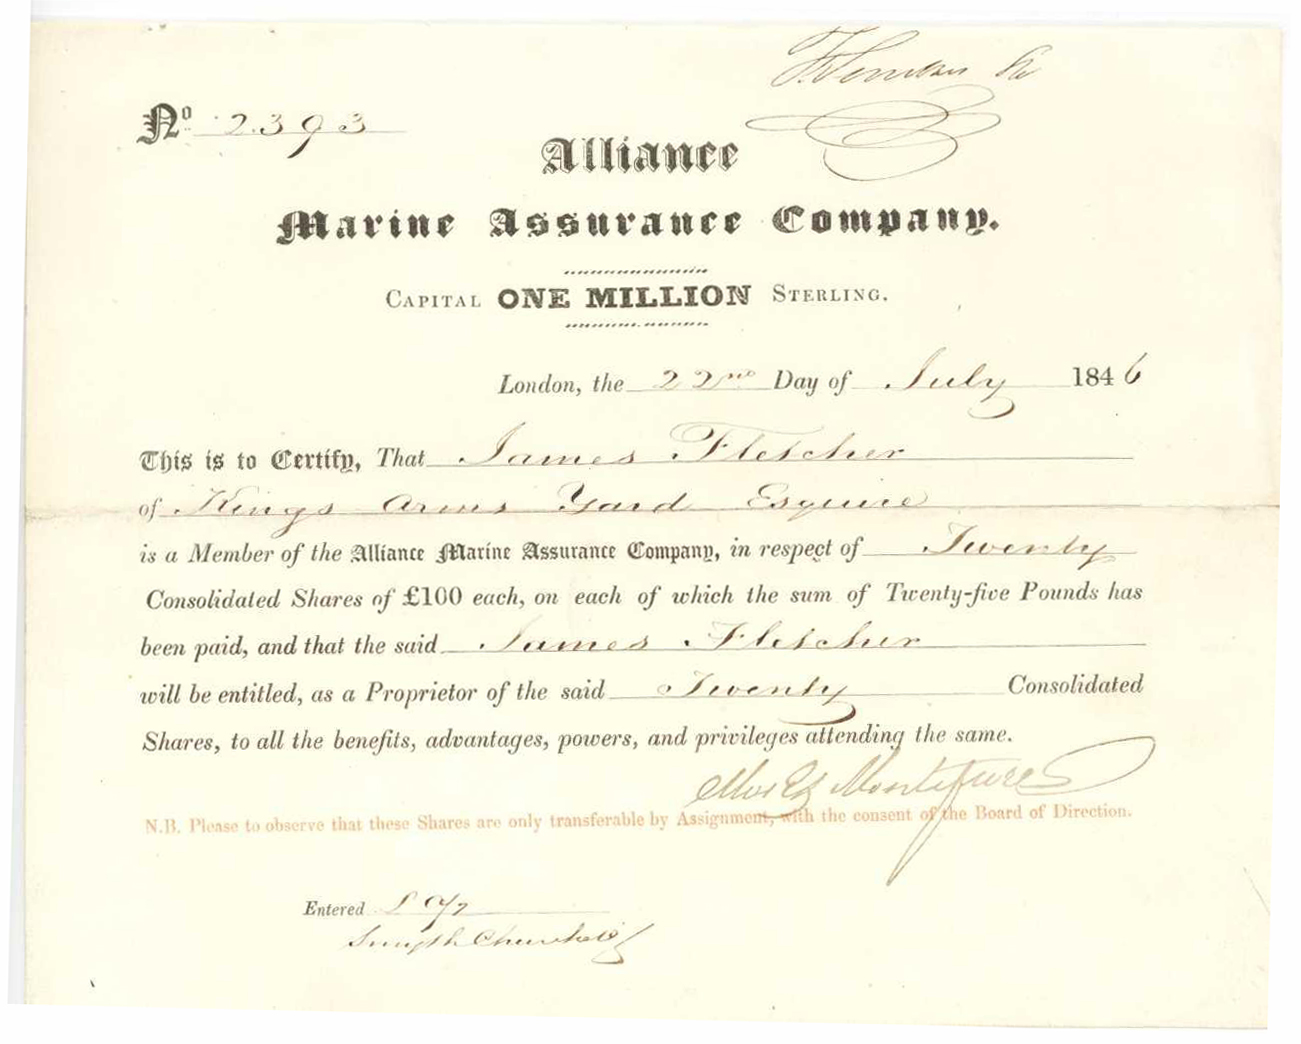 No 2393
Alliance
Marine Assurance Company.
Capital ONE MILLION Sterling.
London, the 22nd Day of July 1846
This is to Certify, That James Fletcher
of Kings Arms Yard Esquire
is a Member of the Alliance Marine Assurance Company, in respect of Twenty
Consolidated Shares of £100 each, on each of which the sum of Twenty-five Pounds has
been paid, and that the said James Fletcher
will be entitled, as a Proprietor of the said Twenty Consolidated
Shares, to all the benefits, advantages, powers, and privileges attending the same.
Montefiore
N.B. Please to observe that these Shares are only transferable by Assignment, with the consent of the Board of Direction.
Entered